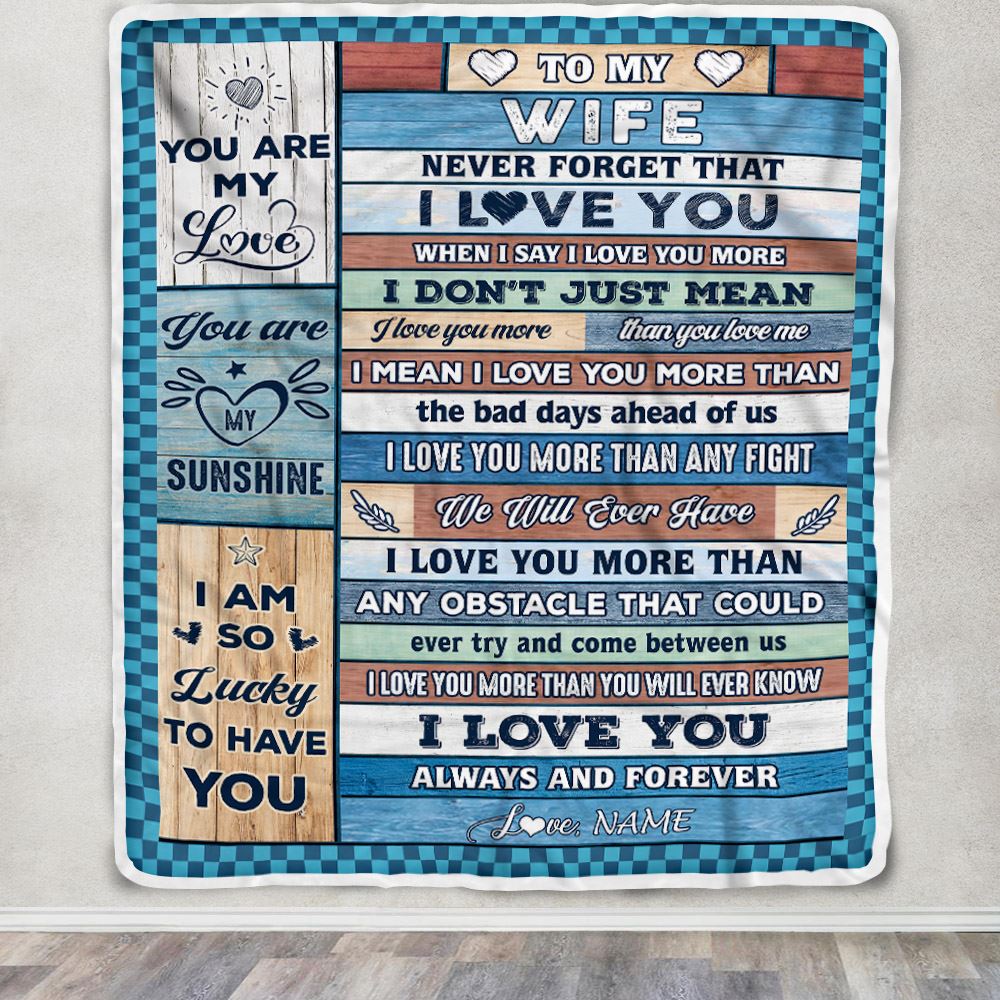 YOU ARE
MY
Love
You are
MY
SUNSHINE
I AM
SO
Lucky
TO HAVE
YOU
TO MY
WIFE
NEVER FORGET THAT
I LOVE YOU
WHEN I SAY I LOVE YOU MORE
I DON'T JUST MEAN
I love you more than you love me
I MEAN I LOVE YOU MORE THAN
the bad days ahead of us
I LOVE YOU MORE THAN ANY FIGHT
We Will Ever Have
I LOVE YOU MORE THAN
ANY OBSTACLE THAT COULD
ever try and come between us
I LOVE YOU MORE THAN YOU WILL EVER KNOW
I LOVE YOU
ALWAYS AND FOREVER
Love, NAME